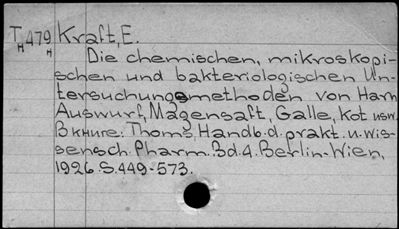 T H 479 H Kraft, E.
Die chemischen, mikroskopi-
schen und bakteriologischen Un-
tersuchungsmethoden von Harn
Auswurf, Magensaft, Galle, Kot usw.
В книге: Thoms, Handb. d. prakt. u. wis-
sensch. Pharm. Bd. 4. Berlin-Wien,
1926. S. 449-573.